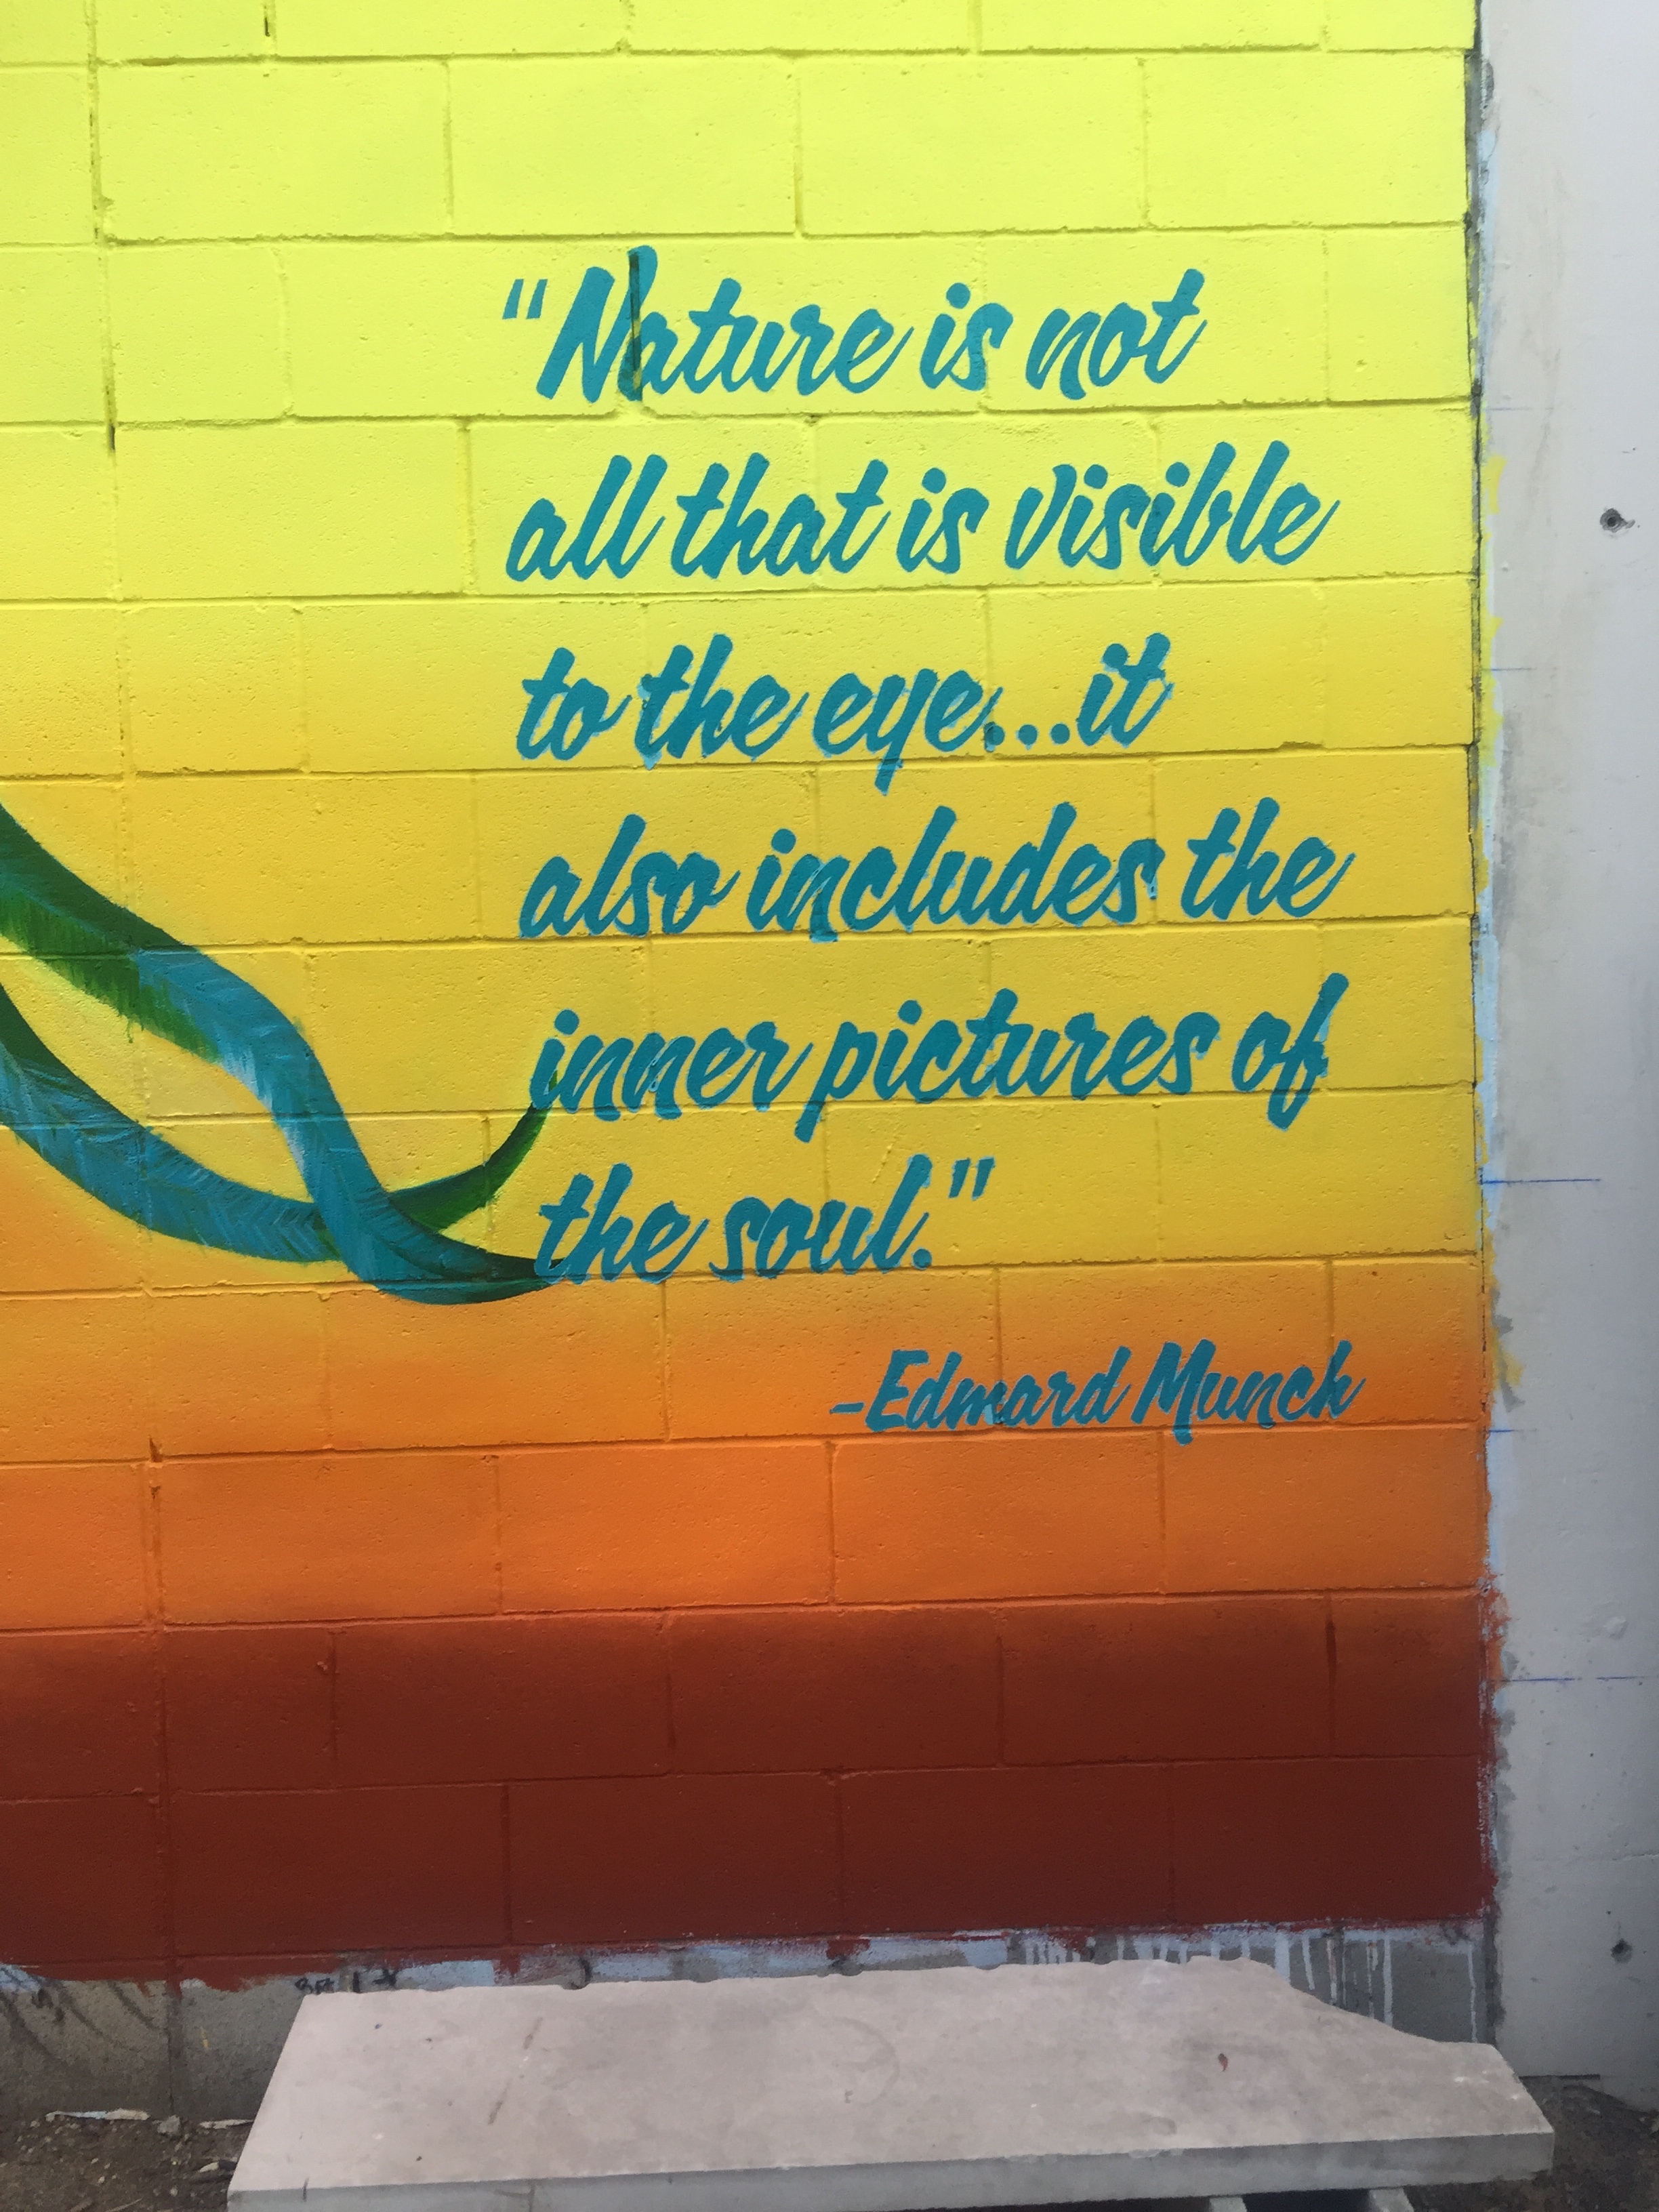 "Nature is not
all that is visible
to the eye...it
also includes the
inner pictures of
the soul."
-Edmard Munch